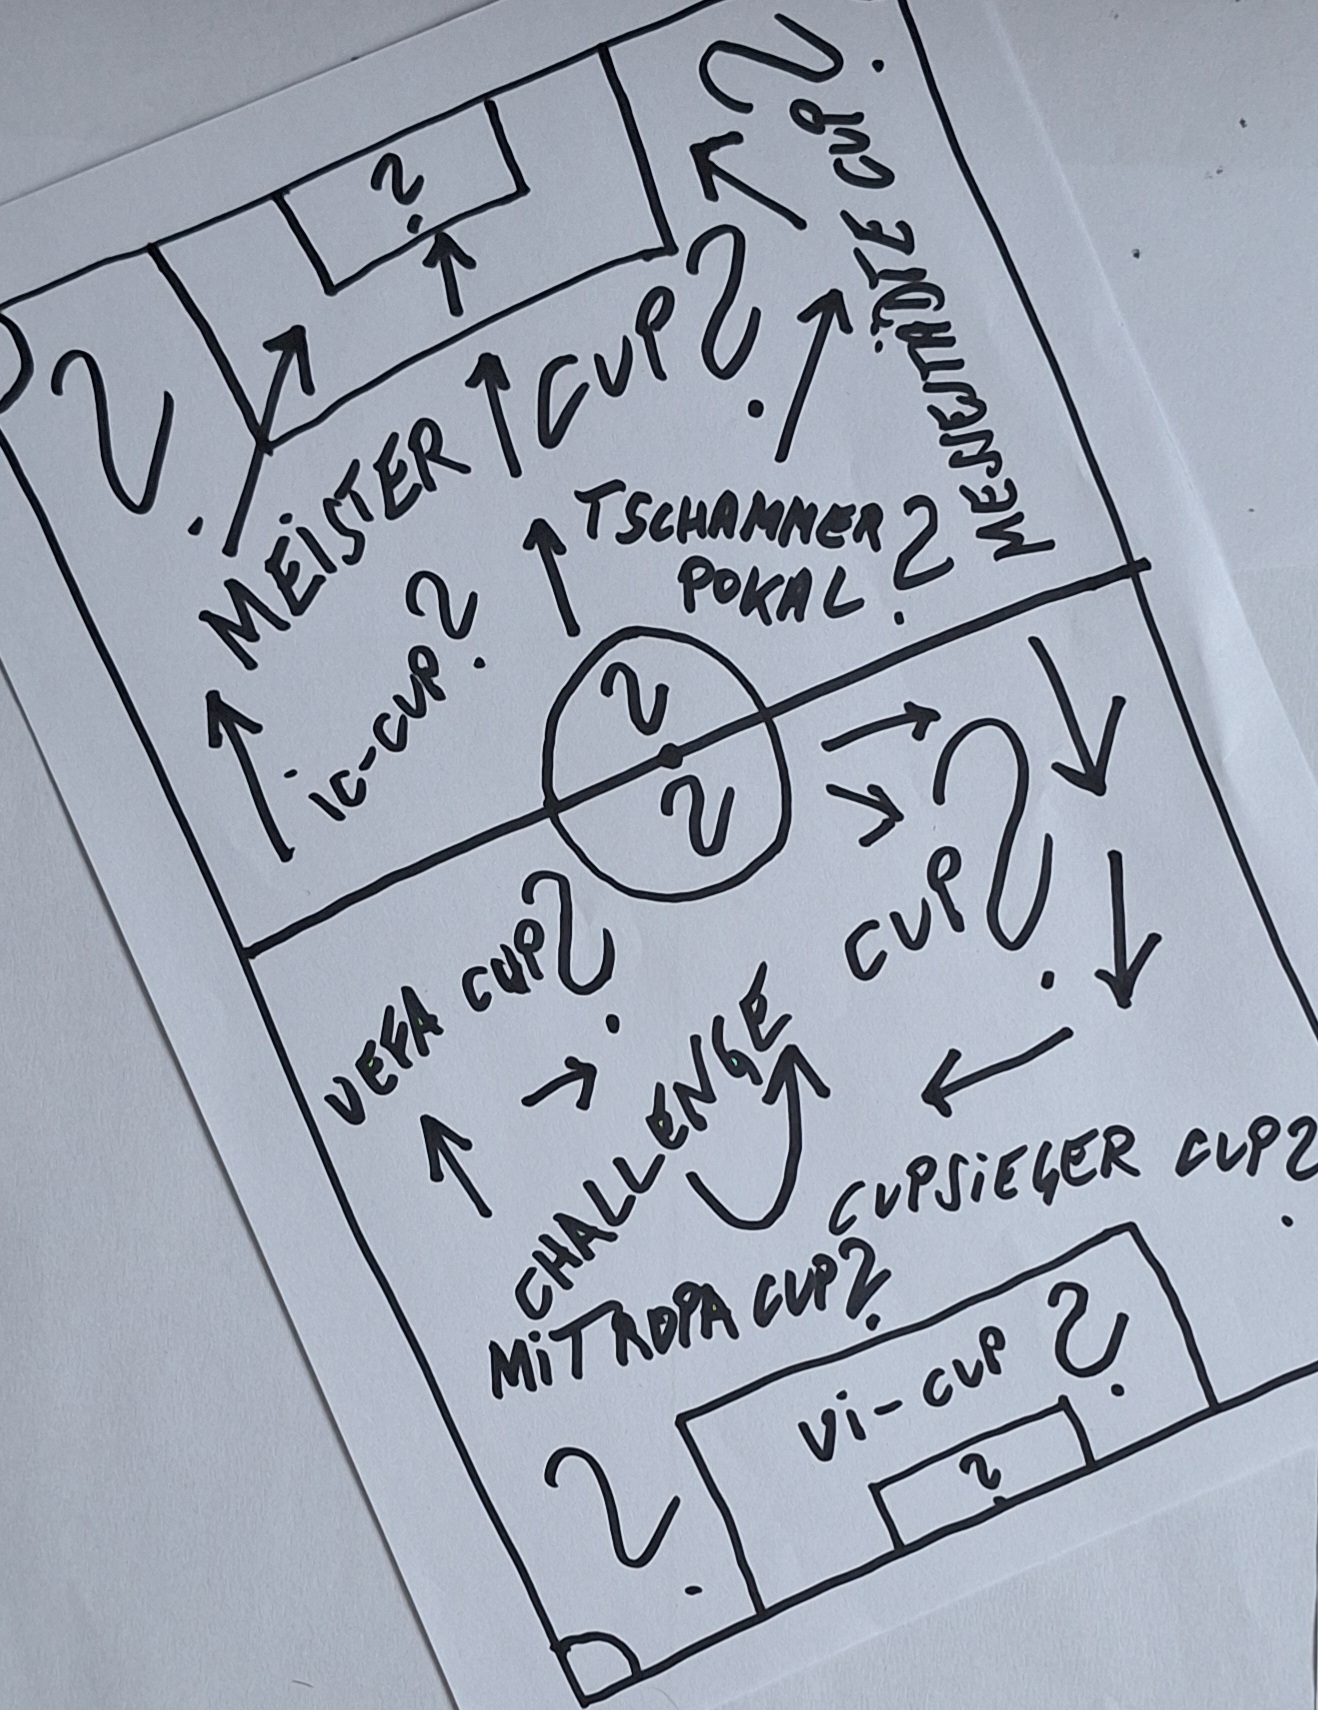 ?
?
?
MESSESTÄDTE CUP?
MEISTER CUP?
TSCHAMMER
POKAL?
iC-CUP?
?
?
UEFA CUP?
CHALLENGE CUP?
CUPSiEGER CUP?
MiTROPA CUP?
Vi-CUP?
?
?